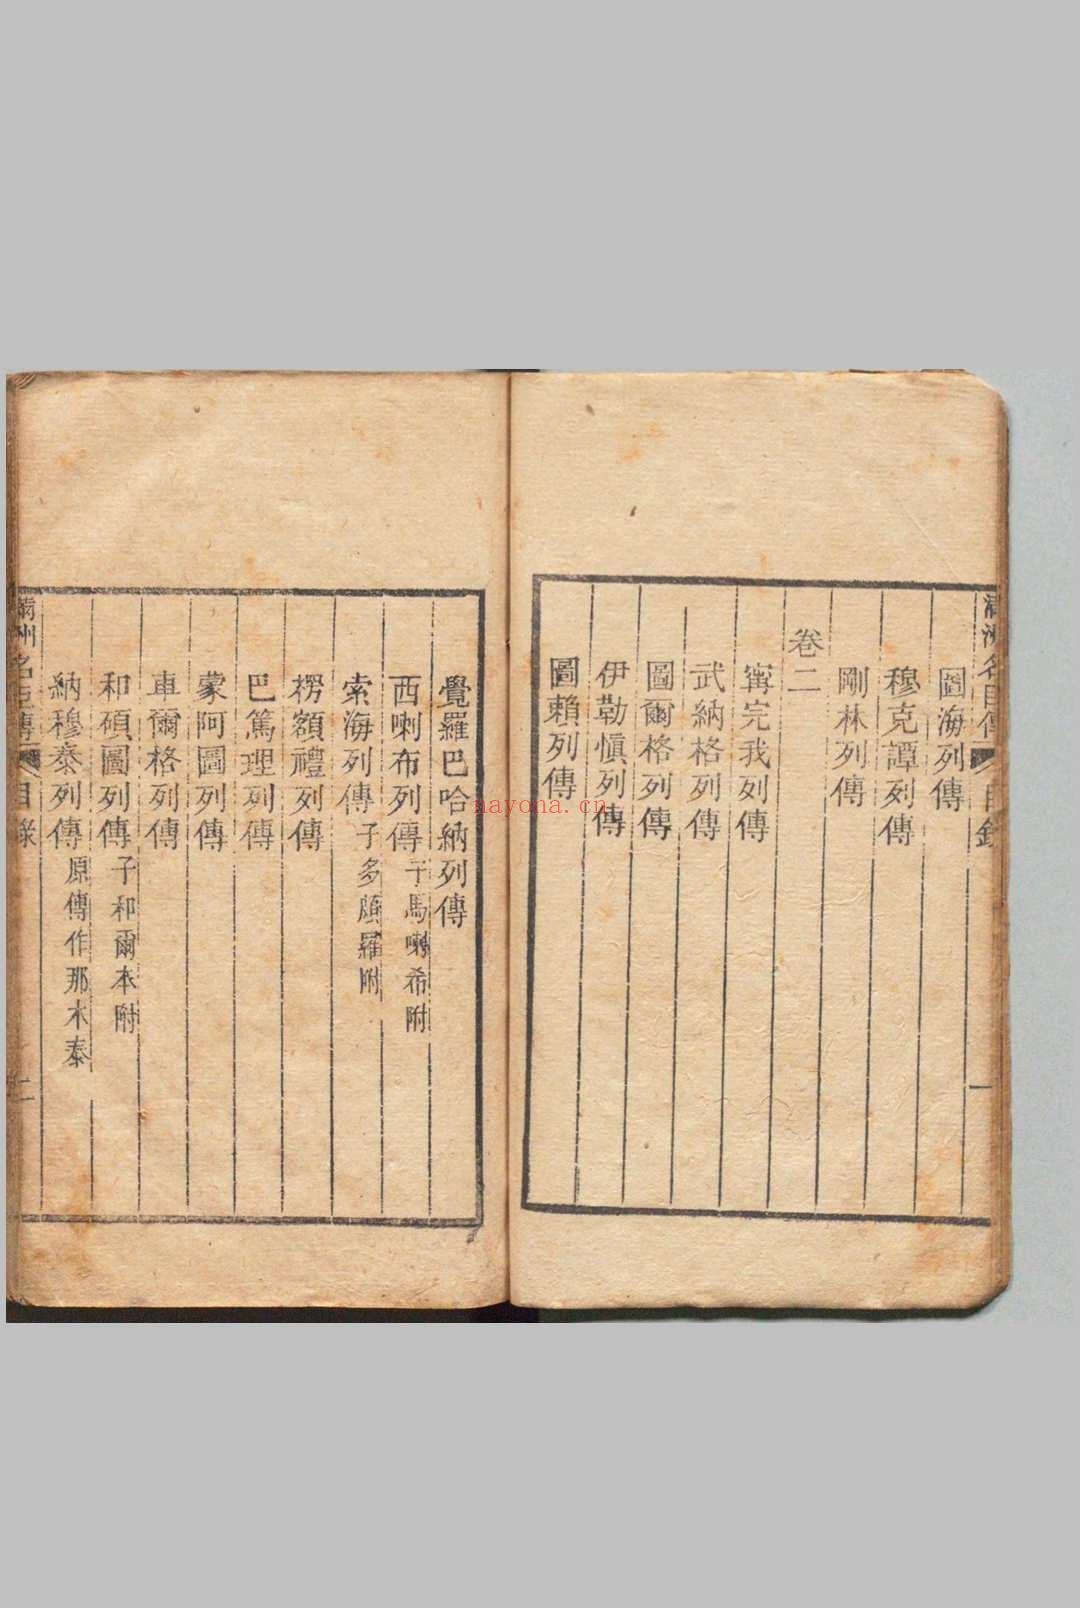 滿洲名臣傳 目錄 一
圖海列傳
穆克譚列傳
剛林列傳
卷二
甯完我列傳
武納格列傳
圖爾格列傳
伊勒愼列傳
圖賴列傳
覺羅巴哈納列傳
西喇布列傳 子馬喇希附
索海列傳 子多頗羅附
楞額禮列傳
巴篤理列傳
蒙阿圖列傳
車爾格列傳
和碩圖列傳 子和爾本附
納穆泰列傳 原傳作那木泰
滿州名臣傳 目錄 二
nayona.cn